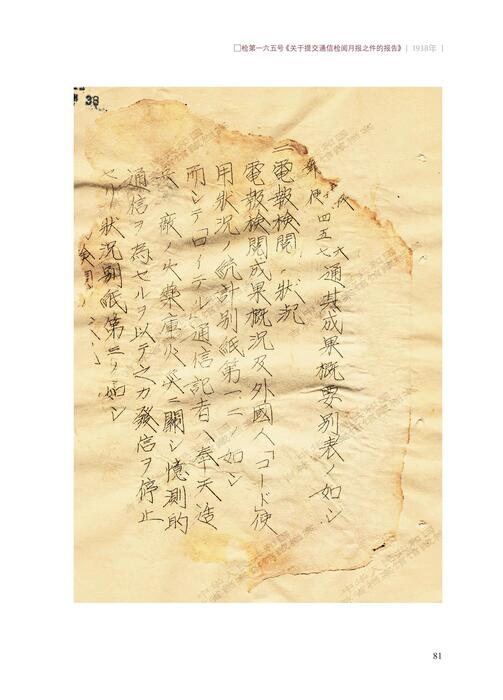 □检第一六五号《关于提交通信检阅月报之件的报告》 | 1938年 |
38
郵便
四五七
通其成果概要別表ノ如シ
二電報検閲ノ状況
電報検閲成果概況及外國人「コード」使
用状況ノ統計別紙第一、二ノ如シ
而シテ「ロイテル」通信記者ハ奉天造
兵廠ノ火薬庫火災ニ關シ憶測的
通信ヲ為セルヲ以テ之カ發信ヲ停止
セリ状況別紙第三ノ如シ
81